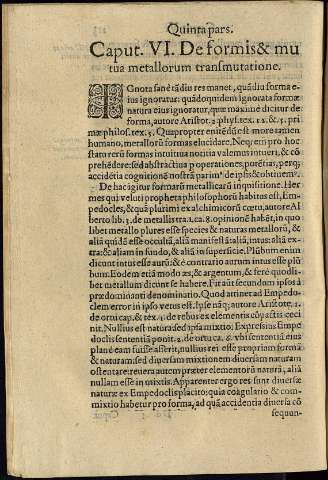 Quinta pars.
Caput. VI. De formis & mu
tua metallorum transmutatione.
IGnota sanè tādiu res manet, quādiu forma e
ius ignoratur: quādoquidem ignorata formæ
natura eius ignoratur, quæ maximè dicitur de
forma, autore Aristot. 2 phys. tex. 12. & 5. pri
mæ philos. tex. 5. Quapropter enitēdū est more tamen
humano, metallorū formas elucidare. Neq; rem pro hoc
statu rerū formas intuitiua notitia valemus intueri, & cō
prehēdere: sed abstractiua p operationes, porētias, perq;
accidētia cognitioni nostrā parim' de ipsis & obtinem'.
De hac igitur formarū metallicarū inquisitione. Her
mes qui veluti propheta philosophorū habitus est, Em
pedocles, & quā plurimi ex alchimicorū cœtu, autore Al
berto lib. 3. de metallis tra. 1. ca. 8. opinionē habēt, in quo
libet metallo plures esse species & naturas metallorū, &
aliā quidē esse occultā, aliā manifestā: aliā, intus: aliā ex-
tra: & aliam in fundo, & aliā in superficie. Plūbum enim
dicunt intus esse aurū: & è contrario aurum intus esse plū
bum. Eodem etiā modo æs, & argentum, & ferè quodli-
bet metallum dicunt se habere. Fit aūt secundum ipsos à
prædominanti denominatio. Quod attinet ad Empedo-
clem error in ipso vetus est. Ipse nāq; autore Aristote. 1.
de ortu cap. & tex. 4. de rebus ex elementis cōpactis ceci
nit. Nullius est natura sed ipsa mixtio. Expressius Empe
doclis sententiā ponit. 2. de ortu ca. 8. vbi sententiā eius
planè eam fuisse asserit, nullius rei esse propriam formā
& naturam, sed diuersam mixtionem diuersam naturam
ostentare: reuera autem præter elementorū naturā, alia
nullam esse in mixtis. Apparenter ergo res sunt diuersæ
naturæ ex Empedoclis placito: quia coagulatio & com
mixtio habetur pro forma, ad quā accidentia diuersa cō
sequun-